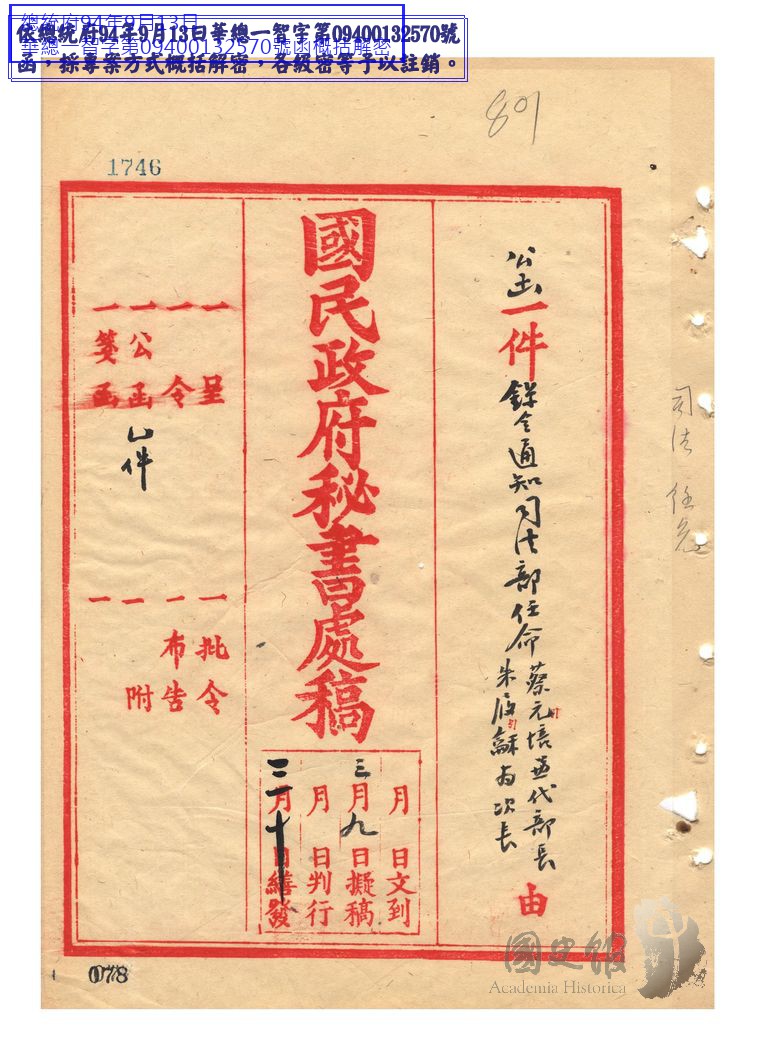 總統府94年9月13日
華總一智字第09400132570號函概括解密
依總統府94年9月13日華總一智字第09400132570號
函，採專案方式概括解密，各級密等予以註銷。
801
1746
司法 任免
公函一件 錄令通知司法部任命蔡元培兼代部長
朱履龢為次長
由
國民政府秘書處稿
月 日文到
三月九日擬稿
月 日判行
三月十日繕發
一 呈
一 令
一 公函 乙件
一 箋函
一 批令
一 布告
一 附
一
078
國史館
Academia Historica